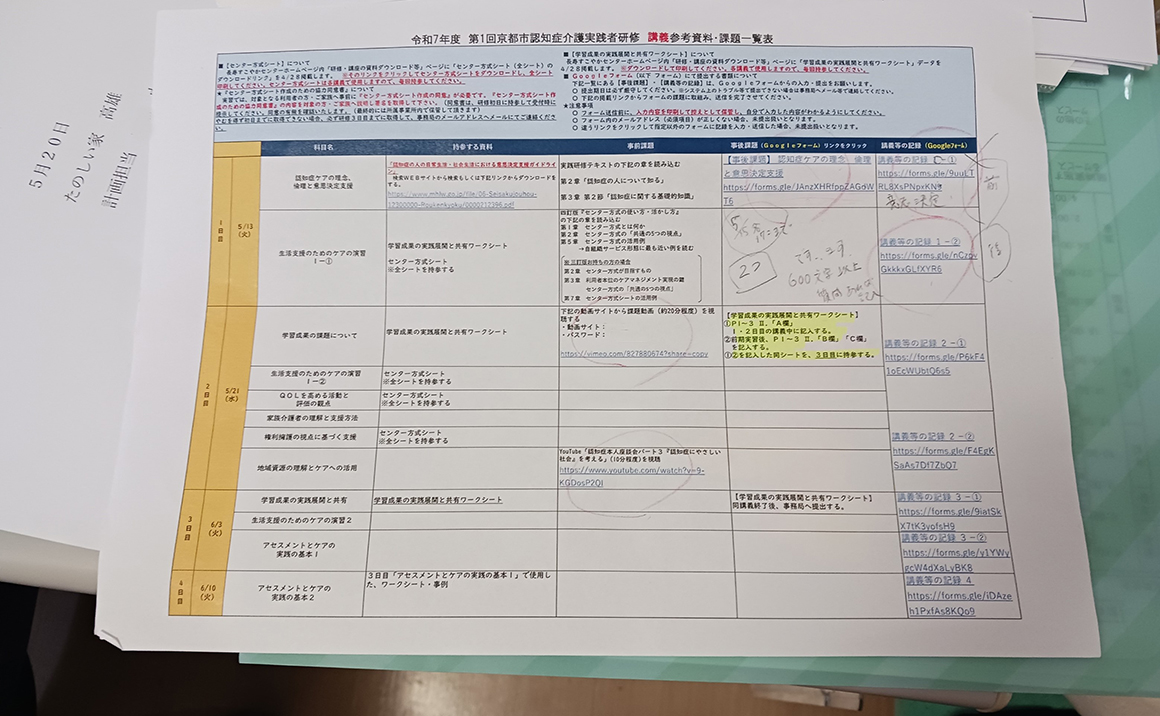 令和7年度 第1回京都市認知症介護実践者研修 講義参考資料・課題一覧表
■【センター方式シート】について
長寿すこやかセンターホームページ内「研修・講座の資料ダウンロード等」ページに「センター方式シート(全シート)の
ダウンロードリンク」を4/28掲載します。 ※そのリンクをクリックしてセンター方式シートをダウンロードし、全シート
印刷してください。センター方式シートは各講義で使用しますので、毎回持参してください。
★『センター方式シート作成のための協力同意書』について
実習では、対象となる利用者の方・ご家族へ事前に『センター方式シート作成の同意』が必要です。『センター方式シート作
成のための協力同意書』の内容を対象の方・ご家族へ説明し署名を取得して下さい。(同意書は、研修初日に持参して受付時に
提示してください。同意の有無を確認いたします。(最終的には所属事業所内で保管して頂きます)
やむを得ず初日までに取得できない場合、必ず研修3日目までに取得して、事務局のメールアドレスへメールにてご連絡くださ
い。
■【学習成果の実践展開と共有ワークシート】について
長寿すこやかセンターホームページ内「研修・講座の資料ダウンロード等」ページに「学習成果の実践展開と共有ワークシート」データを
4/28掲載します。 ※ダウンロードして印刷してください。各講義で使用しますので、毎回持参してください。
■Googleフォーム(以下 フォーム)にて提出する書類について
下記一覧にある【事後課題】・【講義等の記録】は、Googleフォームからの入力・提出をお願いします。
○ 提出期日は必ず厳守してください。※システム上のトラブル等で提出できない場合は事務局へメール等で連絡してください。
○ 下記の掲載リンクからフォームの課題に取組み、送信を完了させてください。
★注意事項
○ フォーム送信前に、入力内容を印刷して控えとして保管し、自分で入力した内容がわかるようにしてください。
○ フォーム内のメールアドレス(必須項目)が正しくない場合、未提出扱いとなります。
○ 違うリンクをクリックして指定以外のフォームに記録を入力・送信した場合、未提出扱いとなります。
科目名 持参する資料 事前課題 事後課題(Googleフォーム)リンクをクリック 講義等の記録(Googleフォーム)
1日目 5/13(火)
認知症ケアの理念、
倫理と意思決定支援
『認知症の人の日常生活・社会生活における意思決定支援ガイドライ
ン』
検索WEBサイトから検索もしくは下記リンクからダウンロードをする。
https://www.mhlw.go.jp/file/06-Seisakujouhou-
12300000-Roukenkyoku/0000212396.pdf
実践研修テキストの下記の章を読み込む
第2章 「認知症の人について知る」
第3章 第2節「認知症に関する基礎的知識」
【事後課題】 認知症ケアの理念、倫理
と意思決定支援
https://forms.gle/JAnzXHRfppZAGdW
T6
講義等の記録 1-①
https://forms.gle/9uuLT
RL8XsPNpxKN9
意思決定
前
生活支援のためのケアの演習
1-①
学習成果の実践展開と共有ワークシート
センター方式シート
※全シートを持参する
四訂版『センター方式の使い方・活かし方』
の下記の章を読み込む
第1章 センター方式とは何か
第2章 センター方式の「共通の5つの視点」
第5章 センター方式の活用例
→自組織サービス形態に最も近い例を読む
※三訂版お持ちの方の場合
第2章 センター方式が目指すもの
第3章 利用者本位のケアマネジメント実現の鍵
センター方式の「共通の5つの視点」
第7章 センター方式シートの活用例
です、ます、
600文字以上
講義等の記録 1-②
https://forms.gle/nCzpv
GkkkxGLfXYR6
後
2日目 5/21(水)
学習成果の課題について
学習成果の実践展開と共有ワークシート
下記の動画サイトから課題動画(約20分程度)を視
聴する
・動画サイト:
・パスワード:
https://vimeo.com/827880674?share=copy
【学習成果の実践展開と共有ワークシート】
①P1～3 Ⅱ.「A欄」
1・2日目の講義中に記入する。
②前期実習後、P1～3 Ⅱ.「B欄」「C欄」
を記入する。
①②を記入した同シートを、3日目に持参する。
講義等の記録 2-①
https://forms.gle/P6kF4
1oEcWUbtQ6s5
生活支援のためのケアの演習
1-②
センター方式シート
※全シートを持参する
QOLを高める活動と
評価の観点
センター方式シート
※全シートを持参する
家族介護者の理解と支援方法
権利擁護の視点に基づく支援
センター方式シート
※全シートを持参する
講義等の記録 2-②
https://forms.gle/F4EgK
SaAs7Df7ZbQ7
地域資源の理解とケアへの活用
YouTube「認知症本人座談会パート3『認知症にやさしい
社会』を考える」(10分程度)を視聴
https://www.youtube.com/watch?v=9-
KGDosP2QI
3日目 6/3(火)
学習成果の実践展開と共有
学習成果の実践展開と共有ワークシート
【学習成果の実践展開と共有ワークシート】
同講義終了後、事務局へ提出する。
講義等の記録 3-①
https://forms.gle/9iatSk
X7tK3yofsH9
生活支援のためのケアの演習2
アセスメントとケアの
実践の基本1
講義等の記録 3-②
https://forms.gle/y1YWy
gcW4dXaLyBK8
4日目 6/10(火)
アセスメントとケアの
実践の基本2
3日目「アセスメントとケアの実践の基本1」で使用し
た、ワークシート・事例
講義等の記録 4
https://forms.gle/iDAze
h1PxfAs8KQo9
5月20日
たのしい家 高雄
計画担当